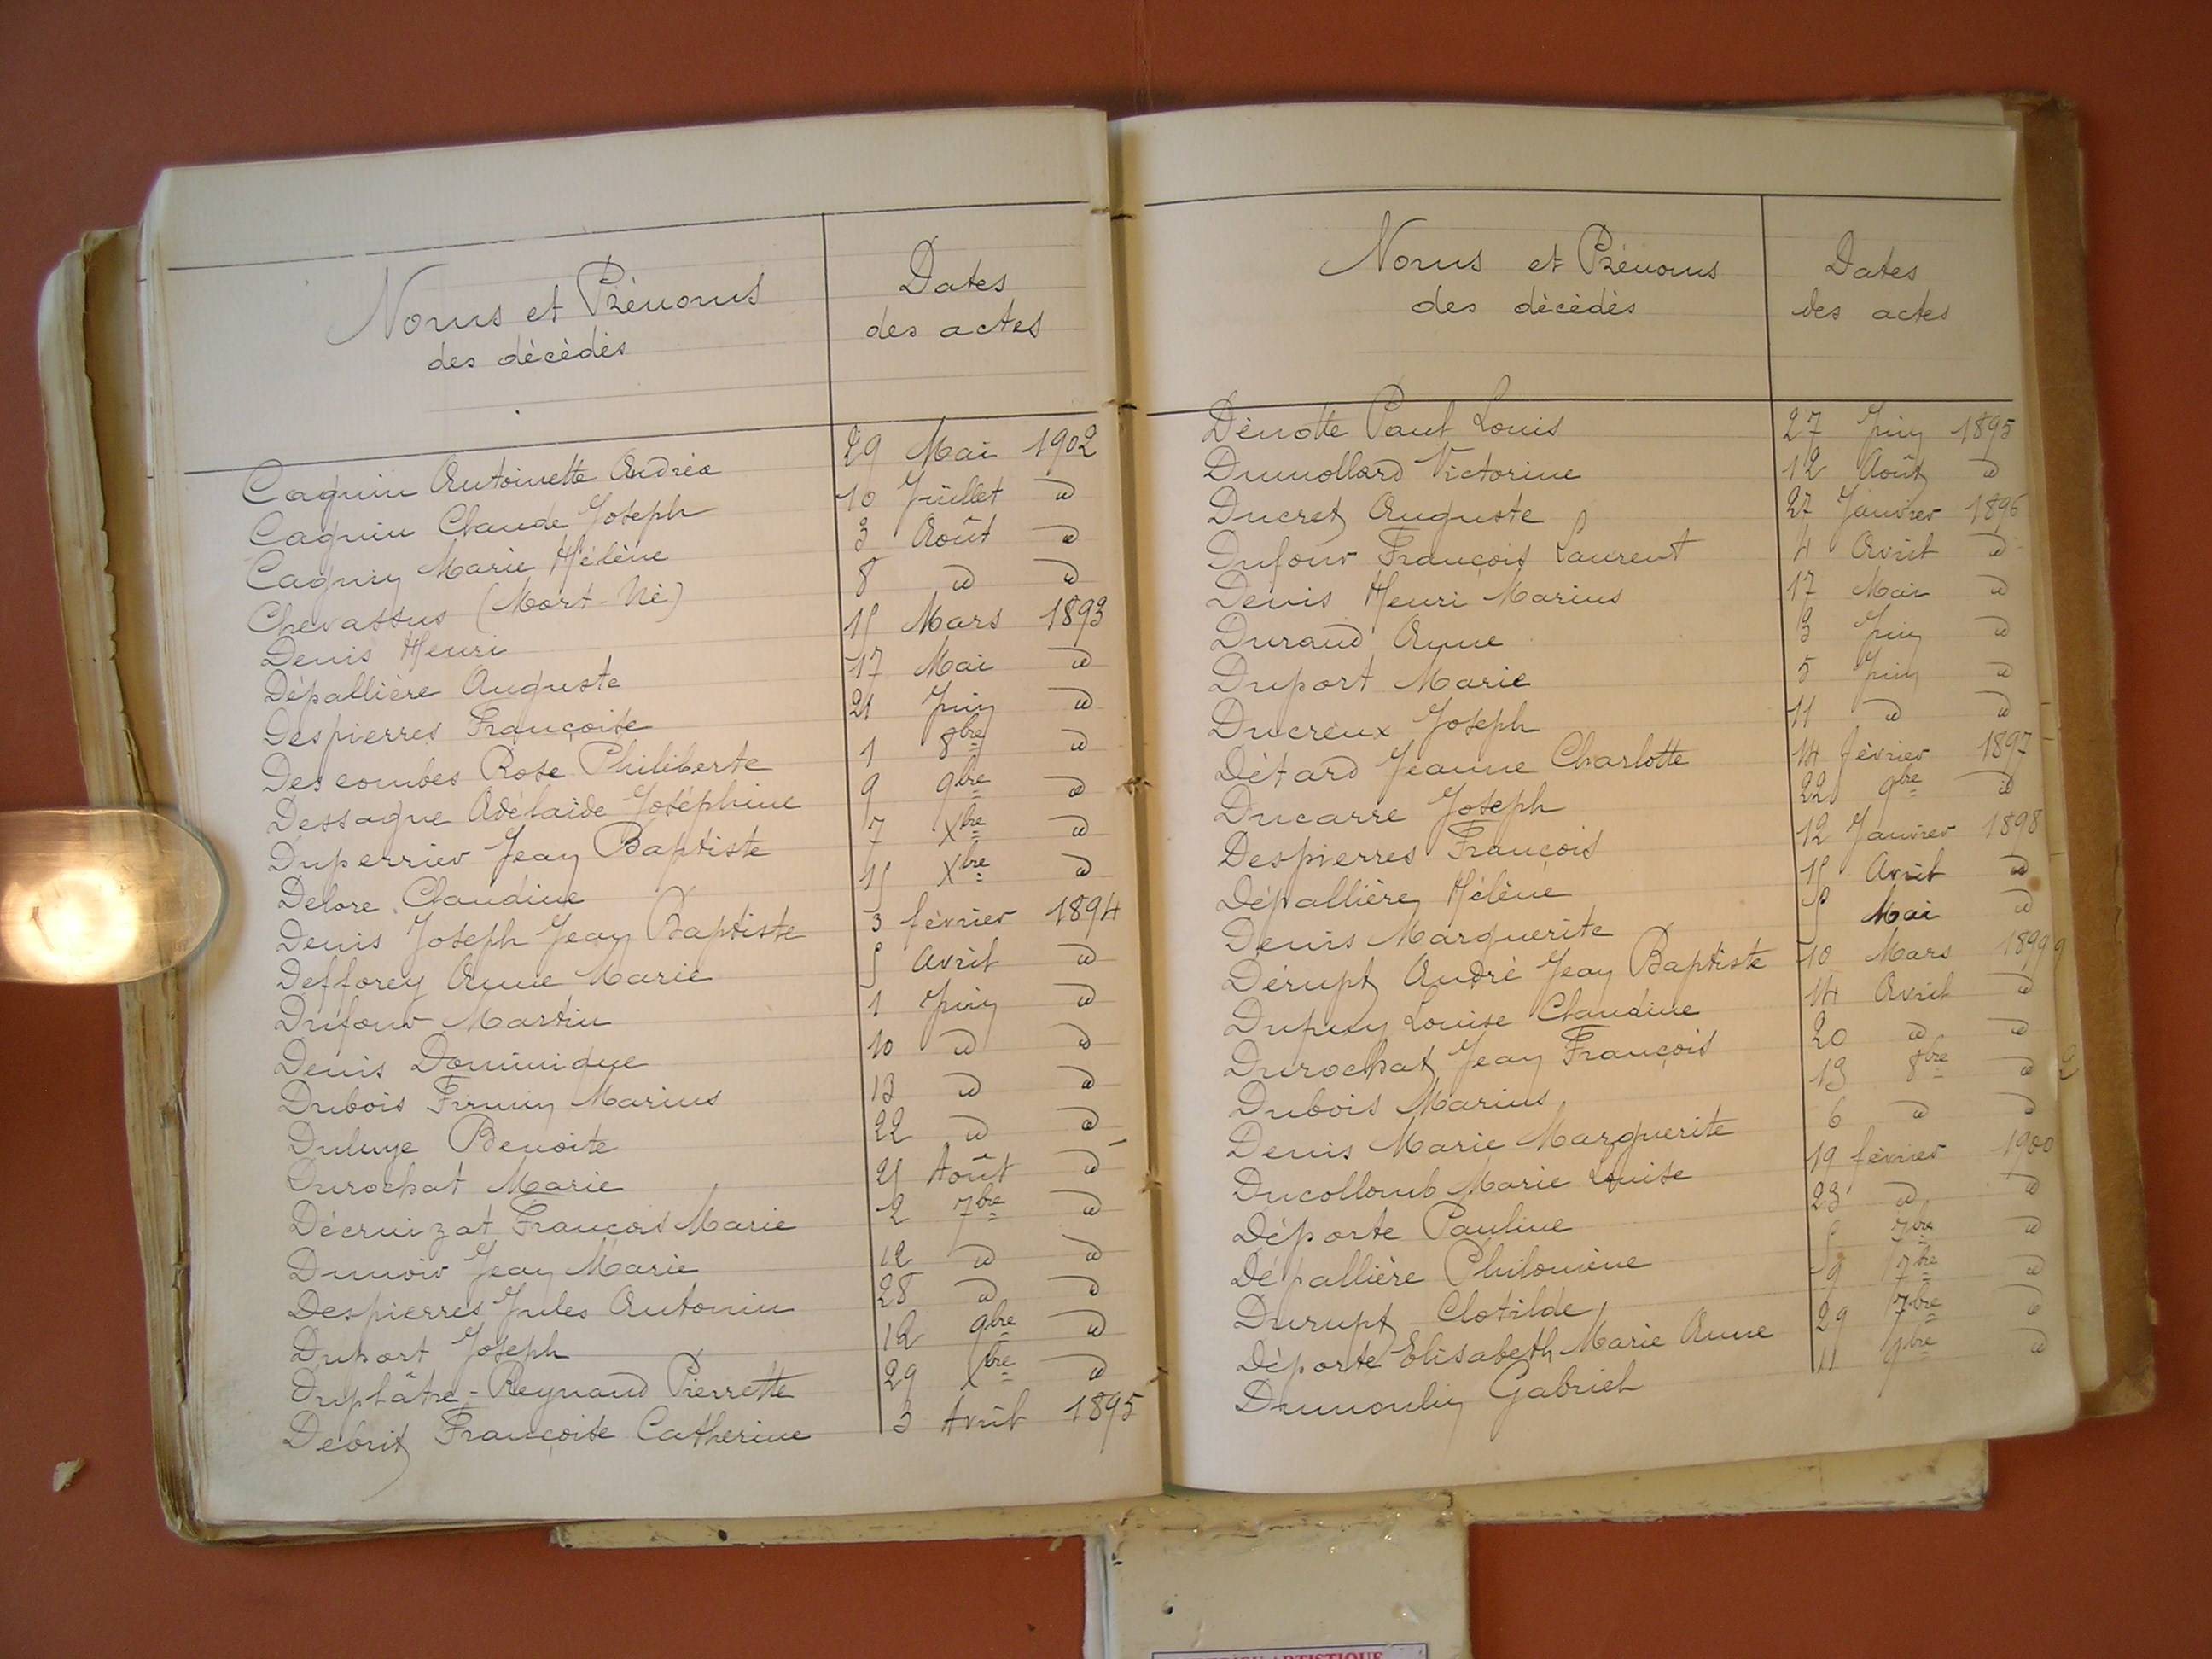 Noms et Prénoms
des décédés
Dates
des actes
Caquin Antoinette Andréa 29 Mai 1902
Caquin Claude Joseph 10 Juillet d
Caquin Marie Hélène 3 Août d
Chevassus (Mort-Né) 8 d d
Denis Henri 15 Mars 1893
Dépallière Auguste 17 Mai d
Despierres Françoise 21 Juin d
Descombes Rose Philiberte 1 8bre d
Dessaque Adélaïde Joséphine 9 9bre d
Duperrier Jean Baptiste 7 Xbre d
Delore Claudine 15 Xbre d
Denis Joseph Jean Baptiste 3 février 1894
Defforey Anne Marie 5 Avril d
Dufour Martin 1 Juin d
Denis Dominique 10 d d
Dubois Firmin Marius 13 d d
Duluye Benoite 22 d d
Durochat Marie 25 Août d
Décruizat François Marie 2 7bre d
Dunoir Jean Marie 12 d d
Despierres Jules Antonin 28 d d
Duport Joseph 12 9bre d
Duplâtre-Reynaud Pierrette 29 Xbre d
Debrit Françoise Catherine 3 Avril 1895
Noms et Prénoms
des décédés
Dates
des actes
Dénotte Paul Louis 27 Juin 1895
Dumollard Victorine 12 Août d
Ducret Auguste 27 Janvier 1896
Dufour François Laurent 4 Avril d
Denis Henri Marius 17 Mai d
Durand Anne 3 Juin d
Duport Marie 5 Juin d
Ducreux Joseph 11 d d
Détard Jeanne Charlotte 14 février 1897
Ducarre Joseph 22 9bre d
Despierres François 12 Janvier 1898
Dépallière Hélène 15 Avril d
Denis Marguerite 5 Mai d
Dérupt André Jean Baptiste 10 Mars 1899
Dupuy Louise Claudine 14 Avril d
Durochat Jean François 20 d d
Dubois Marius 13 8bre d
Denis Marie Marguerite 6 d d
Ducollomb Marie Louise 19 février 1900
Déporte Pauline 23 d d
Dépallière Philomène 5 7bre d
Durupt Clotilde 9 7bre d
Déporte Elisabeth Marie Anne 29 7bre d
Dumoulin Gabriel 11 9bre d